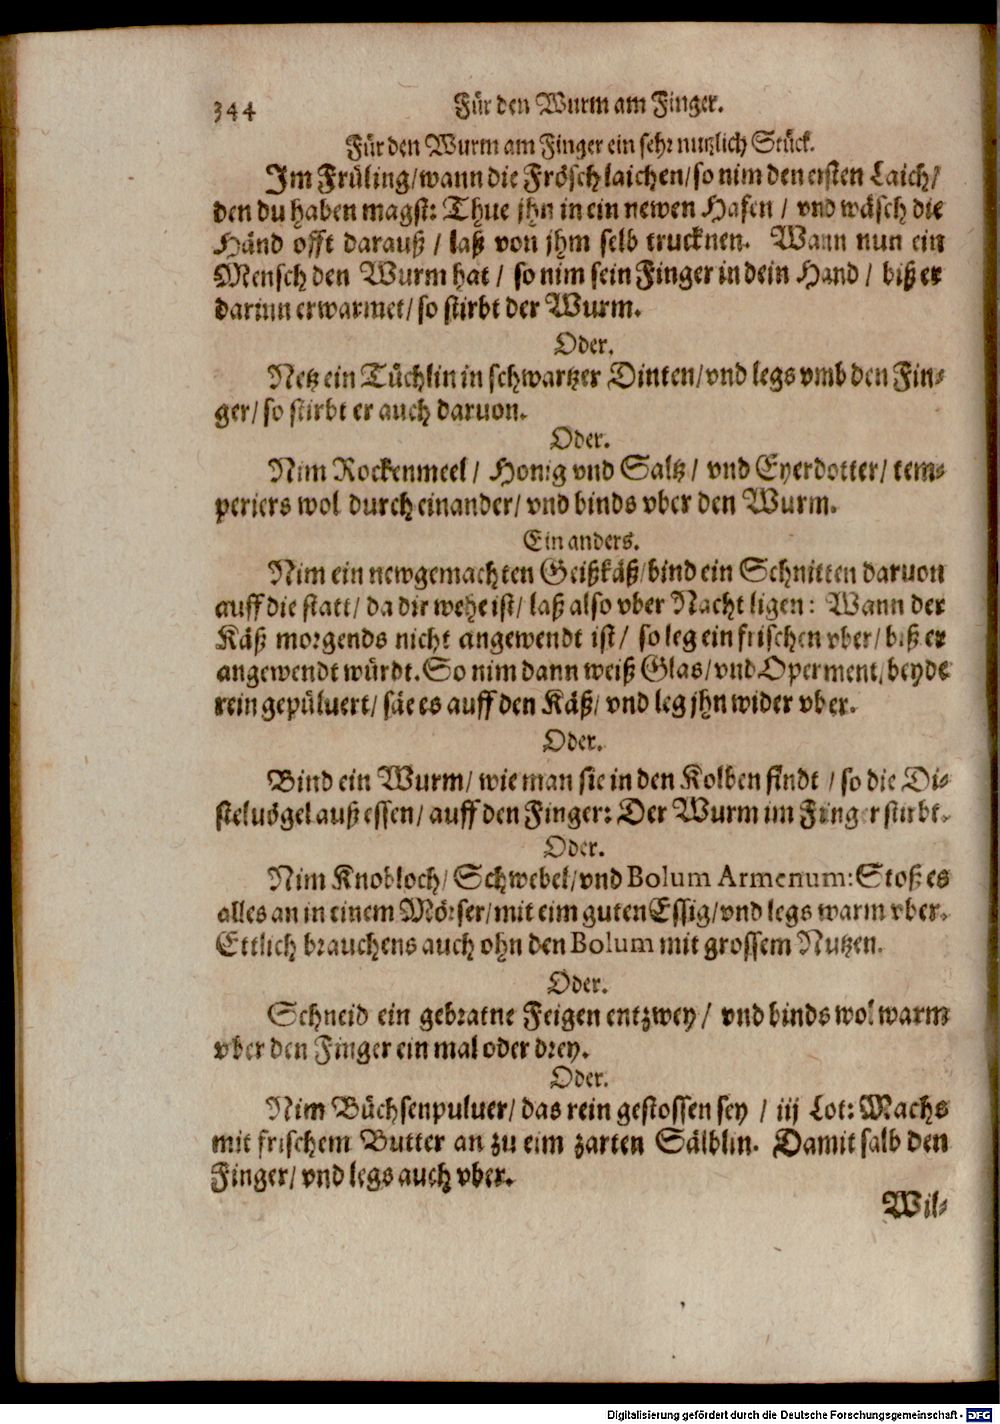 344 Für den Wurm am Finger.
Für den Wurm am Finger ein sehr nutzlich Stück.
Im Früling/ wann die Frösch laichen/ so nim den ersten Laich/
den du haben magst: Thue jhn in ein newen Hafen / vnd wäsch die
Händ offt darauß / laß von jhm selb trucknen. Wann nun ein
Mensch den Wurm hat / so nim sein Finger in dein Hand / biß er
darinn erwarmet/ so stirbt der Wurm.
Oder.
Netz ein Tüchlin in schwartzer Dinten/ vnd legs vmb den Fin-
ger/ so stirbt er auch daruon.
Oder.
Nim Rockenmeel / Honig vnd Saltz / vnd Eyerdotter/ tem-
periers wol durch einander/ vnd binds vber den Wurm.
Ein anders.
Nim ein newgemachten Geißkäß/ bind ein Schnitten daruon
auff die statt/ da dir wehe ist/ laß also vber Nacht ligen: Wann der
Käß morgends nicht angewendt ist/ so leg ein frischen vber/ biß er
angewendt würdt. So nim dann weiß Glas/ vnd Operment, beyde
rein gepüluert/ säe es auff den Käß/ vnd leg jhn wider vber.
Oder.
Bind ein Wurm/ wie man sie in den Kolben findt / so die Di-
stelvögel auß essen/ auff den Finger: Der Wurm im Finger stirbt.
Oder.
Nim Knobloch/ Schwebel/ vnd Bolum Armenum: Stoß es
alles an in einem Mörser/ mit eim guten Essig/ vnd legs warm vber.
Ettlich brauchens auch ohn den Bolum mit grossem Nutzen.
Oder.
Schneid ein gebratne Feigen entzwey / vnd binds wol warm
vber den Finger ein mal oder drey.
Oder.
Nim Büchsenpuluer/ das rein gestossen sey / iij Lot: Machs
mit frischem Butter an zu eim zarten Sälblin. Damit salb den
Finger/ vnd legs auch vber.
Wil-
Digitalisierung gefördert durch die Deutsche Forschungsgemeinschaft - DFG